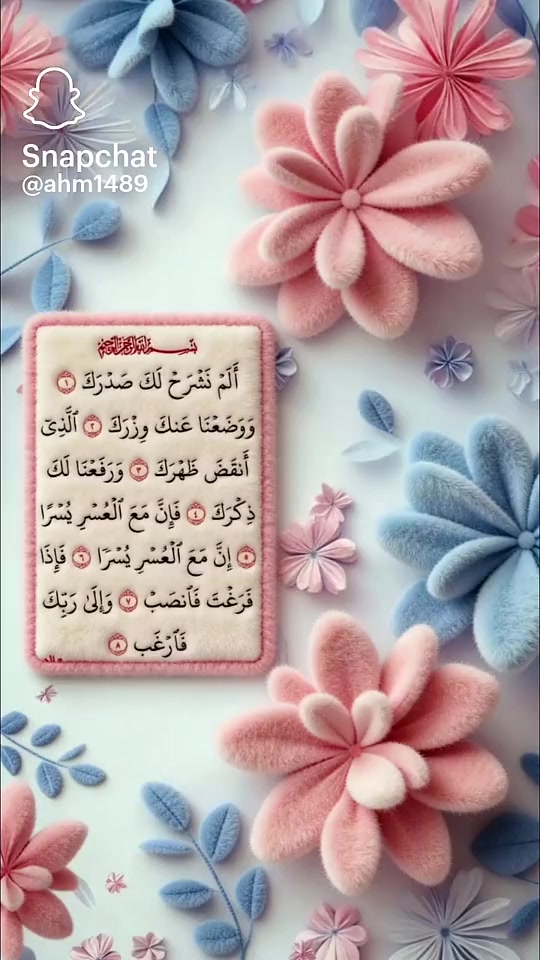 Snapchat
@ahm1489
بسم الله الرحمن الرحيم
أَلَمْ نَشْرَحْ لَكَ صَدْرَكَ ١
وَوَضَعْنَا عَنكَ وِزْرَكَ ٢ ٱلَّذِىٓ
أَنقَضَ ظَهْرَكَ ٣ وَرَفَعْنَا لَكَ
ذِكْرَكَ ٤ فَإِنَّ مَعَ ٱلْعُسْرِ يُسْرًا
٥ إِنَّ مَعَ ٱلْعُسْرِ يُسْرًا ٦ فَإِذَا
فَرَغْتَ فَٱنصَبْ ٧ وَإِلَىٰ رَبِّكَ
فَٱرْغَب ٨